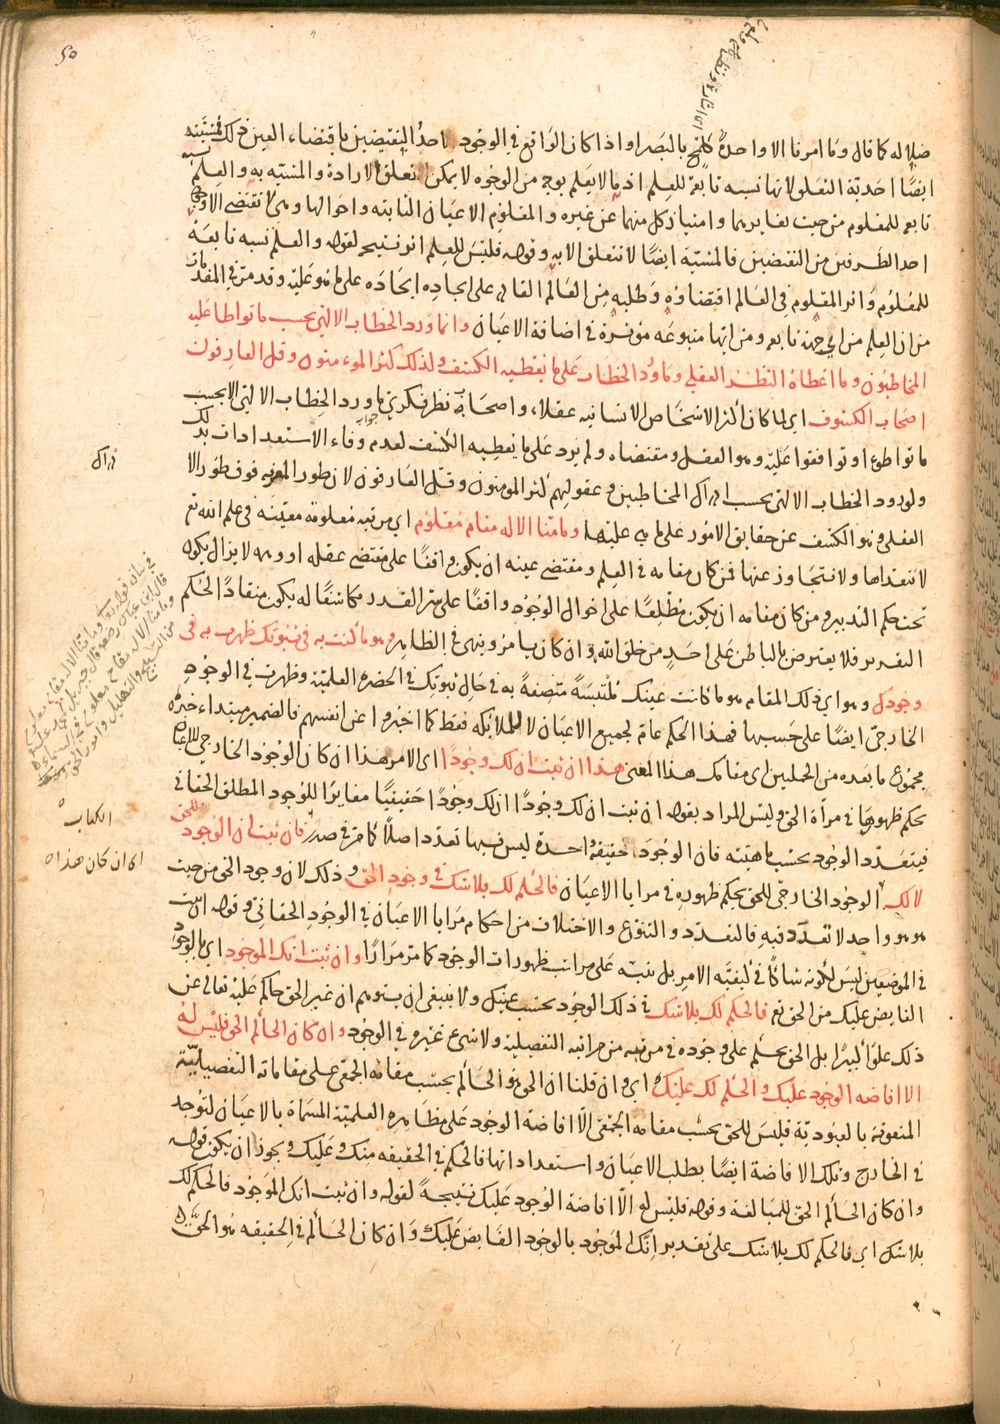 ٥٠
ضلاله كما قال وما امرنا الا واحدة كلمح بالبصر او اذا كان الواقع في الوجود احد النقيضين باقتضاء العين ذلك فمشيته
ايضا احدية التعلق لانها نسبه تابعة للعلم اذ ما لا يعلم بوجه من الوجوه لا يمكن تعلق الارادة والمشية به والعلم نسبه
تابعه للمعلوم من حيث تغايرهما وامتياز كل منهما عن غيره والمعلوم الاعيان الثابته واحوالها وهي لا تقتضي الا وجود
احد الطرفين من النقيضين فالمشية ايضا لا تتعلق الا به وقوله فليس للعلم اثر نتيجه لقوله والعلم نسبه تابعه
للمعلوم واثر المعلوم في العالم اقتضاؤه وطلبه من العالم القادر على ايجاده ايجاده على ما هو عليه وقد مر في المقدمات
من ان العلم من اي جهة تابعه ومن ايها متبوعه موثرة في اضافة الاعيان وانما ورد الخطاب الالهي بحسب ما تواطا عليه
المخاطبون وما اعطاه النظر العقلي وما ورد الخطاب على ما يعطيه الكشف ولذلك كثر المومنون وقل العارفون
اصحاب الكشوف اي لما كان اكثر الاشخاص الانسانيه عقلاء واصحاب نظر فكري ما ورد الخطاب الالهي الا بحسب
ما تواطوءا وتوافقوا عليه وهو العقل ومقتضاه ولم يرد على ما يعطيه الكشف لعدم وفاء الاستعدادات بذلك
جوابه
ولورود الخطاب الالهي بحسب ادراك المخاطبين وعقولهم كثر المومنون وقل العارفون لان طور المعرفه فوق طور الادراك
العقلي وهو الكشف عن حقايق الامور على ما هي عليها وما منا الا له مقام معلوم اي مرتبه معلومة معينه في علم الله تع
لا تتعداها ولا تتجاوز عنها فمن كان مقامه في العلم ومقتضى عينه ان يكون واقفا على مقتضى عقله او وهمه لا يزال يكون
تحت حكم التدبير ومن كان مقامه ان يكون مطلعا على احوال الوجود واقفا على سر القدر مكاشفا له يكون منقادا لحكم
التقدير فلا يعترض بالباطن على احد من خلق الله وان كان يامر وينهى في الظاهر وهو ما كنت به في ثبوتك ظهرت به في
وجودك وهو اي ذلك المقام هو ما كانت عينك ملتبسة متصفة به في حال ثبوتك في الحضره العلمية وظهرت في الوجود
الخارجي ايضا على حسبها فهذا الحكم عام لجميع الاعيان لا للملائكه فقط كما اخبروا عن انفسهم فالضمير مبتداء خبره
مجموع ما بعده من الجملتين اي مقامك هذا المعنى هذا ان ثبت ان لك وجودا اي الامر هذا ان كان الوجود الخارجي للاعيان
بحكم ظهورها في مرآة الحق وليس المراد بقوله ان ثبت ان لك وجودا ان لك وجودا حقيقيا مغايرا للوجود المطلق الحقاني
فيتعدد الوجود بحسب الماهيته فان الوجود حقيقة واحدة ليس فيها تعدد اصلا كما مر في صدر الكتاب فان ثبت ان الوجود للحق
لا لك الوجود الخارجي للحق بحكم ظهوره في مرايا الاعيان فالحكم لك بلا شك في وجود الحق وذلك لان وجود الحق من حيث
هو هو واحد لا تعدد فيه فالتعدد والتنوع والاختلاف من احكام مرايا الاعيان في الوجود الحقاني وقوله ان ثبت
في الموضعين ليس لكونه شاكا في كيفية الامر بل تنبيه على مراتب ظهورات الوجود كما مر مرارا وان ثبت انك الموجود اي بالوجود
الفايض عليك من الحق تع فالحكم لك بلا شك في ذلك الوجود بحسب عينك ولا ينبغي ان يتوهم ان غير الحق حاكم عليه تعالى عن
ذلك علوا كبيرا بل الحق يحكم على وجوده في مرتبه من مراتبه التفصيلية ولا شيء غيره في الوجود وان كان الحاكم الحق فليس له
الا افاضه الوجود عليك والحكم لك عليك اي وان قلنا ان الحق هو الحاكم بحسب مقامه الجمعي على مقاماته التفصيلية
المنعوتة بالعبودية فليس للحق بحسب مقامه الجمعي الا افاضة الوجود على مظاهره العلمية المسماة بالاعيان لتوجد
في الخارج وتلك الافاضة ايضا بطلب الاعيان واستعداداتها فالحكم في الحقيقه منك وعليك ويجوز ان يكون قوله
وان كان الحاكم الحق للمبالغة وقوله فليس له الا افاضة الوجود عليك نتيجة لقوله وان ثبت انك الموجود فالحكم لك
بلا شك اي فالحكم لك بلا شك على تقدير انك الموجود بالوجود الفايض عليك وان كان الحاكم في الحقيقه هو الحق
ادراك
الكتاب
ان كان هذا